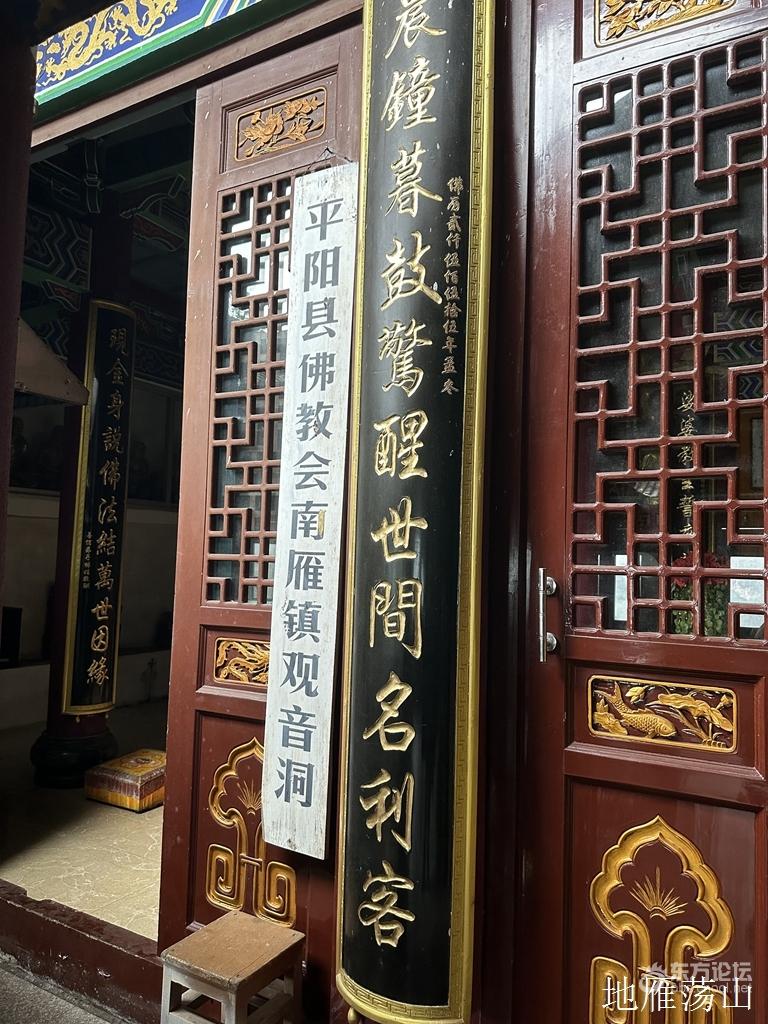 晨鐘暮鼓驚醒世間名利客
佛历贰仟伍佰伍拾伍年孟冬
平阳县佛教会南雁镇观音洞
現金身說佛法結萬世因緣
东方论坛
地雁荡山